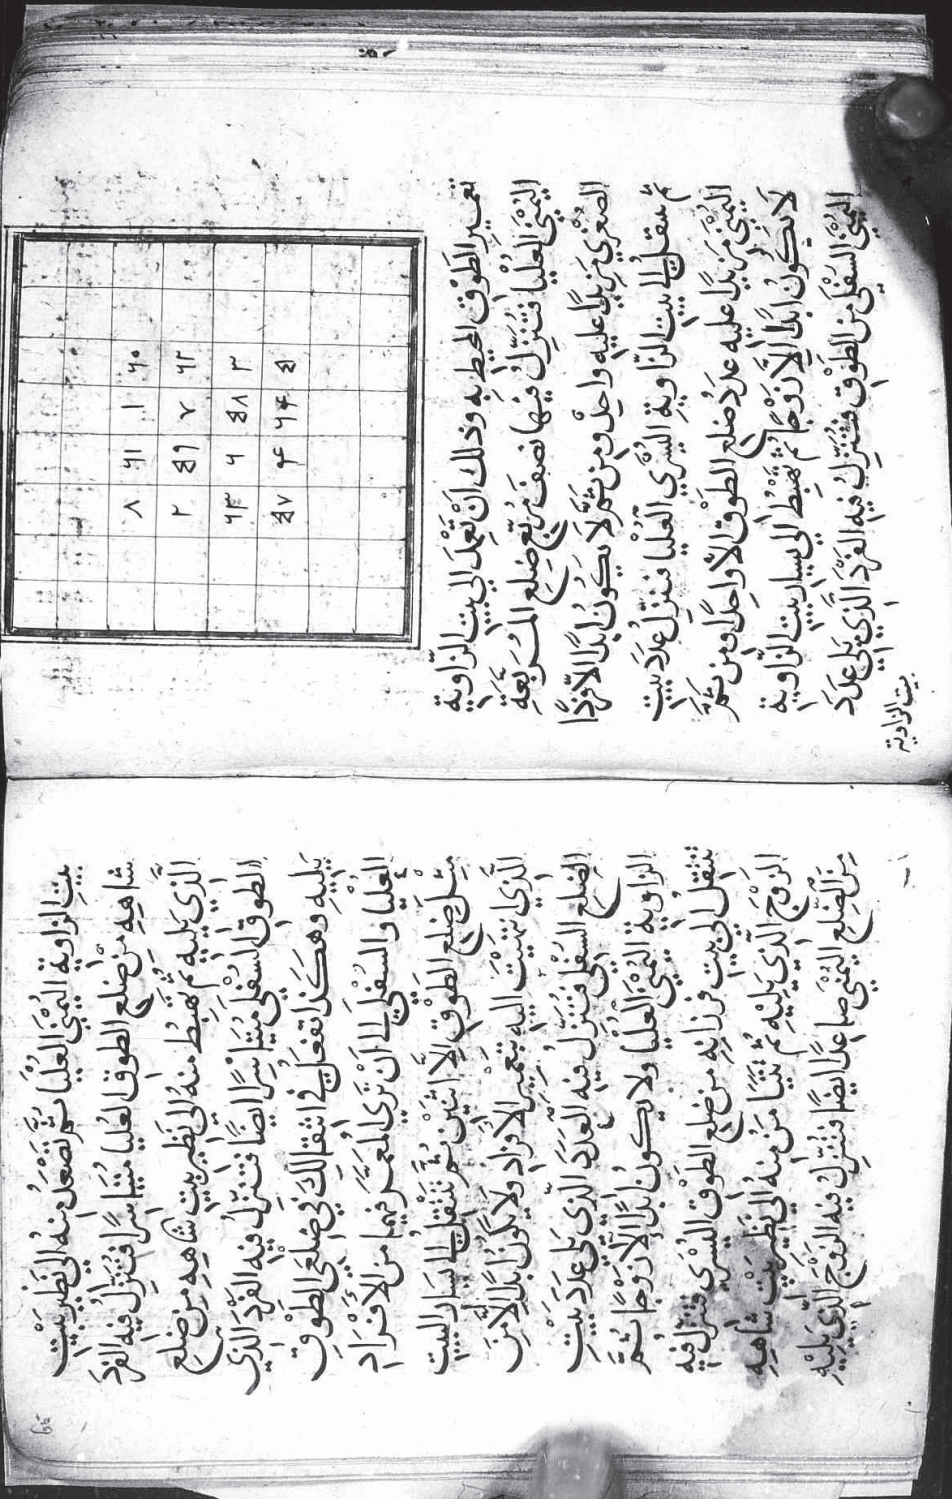 ٨ ٦١ ١ ٦٠
٢ ٥٩ ٧ ٦٢
٦٣ ٦ ٥٨ ٣
٥٧ ٤ ٦٤ ٥
تعمير الطوق المحيط به وذلك ان تعمد الى بيت الزاوية
اليمنى العليا فتنزل فيها نصف مربع ضلع المربعة
الصغرى مزيدًا عليه واحد ومن ثم لا يكون ابدًا الا فردًا
ثم تنتقل الى بيت الزاوية اليسرى العليا فتنزل عدد بيت
اليمنى مزيدًا عليه عدد ضلع الطوق الا واحدًا ومن ثم
لا يكون ابدًا الا زوجًا ثم تهبط الى يسار بيت الزاوية
اليمنى السفلى من الطوق فتنزل فيه الفرد الذي يلي عدد
بيت الزاوية
بيت الزاوية اليمنى العليا ثم تصعد منه الى نظير بيت
شاهه من ضلع الطوق العليا متياسرًا فتنزل فيه الفرد
الذي يليه ثم تهبط منه الى نظير بيت شاهه من ضلع
الطوق السفلى متياسرًا ايضًا فتنزل فيه الفرد الذي
يليه وهكذا تفعل في انتقالك في ضلعي الطوق
العليا والسفلى الى ان ترى المعمر فيهما من الافراد
مثل ضلع الطوق الا اثنين ثم تنتقل الى يسار البيت
الذي نتهيت اليه بتعمير الافراد ولا يكون ابدًا الا من
الضلع السفلى فتنزل فيه العدد الذي يلي عدد بيت
الزاوية اليمنى العليا ولا يكون ابدًا الا زوجا ثم
تنتقل الى بيت فرزانه من ضلع الطوق اليسرى فتنزل فيه
الزوج الذي يليه ثم تتيامن منه الى نظير بيت شاهه
من الضلع اليمنى صاعدًا ايضًا فتنزل فيه الزوج الذي يليه